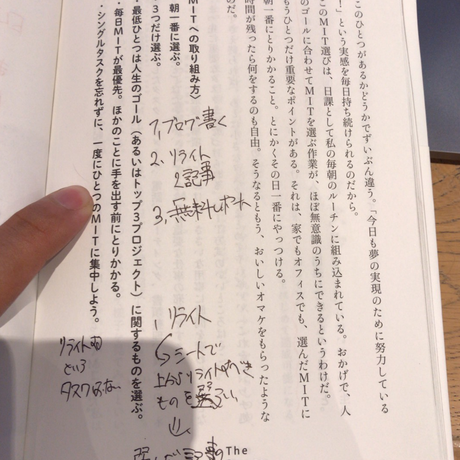 このひとつがあるかどうかでずいぶん違う。「今日も夢の実現のために努力している
！」という実感を毎日持ち続けられるのだから。
このMIT選びは、日課として私の毎朝のルーチンに組み込まれている。おかげで、人
のゴールに合わせてMITを選ぶ作業が、ほぼ無意識のうちにできるというわけだ。
もうひとつだけ重要なポイントがある。それは、家でもオフィスでも、選んだMITに
朝一番にとりかかること。とにかくその日一番にやっつける。
時間が残ったら何をするのも自由。そうなるともう、おいしいオマケをもらったような
のだ。
MITへの取り組み方〉
朝一番に選ぶ。
3つだけ選ぶ。
・最低ひとつは人生のゴール（あるいはトップ3プロジェクト）に関するものを選ぶ。
・毎日MITが最優先。ほかのことに手を出す前にとりかかる。
・シングルタスクを忘れずに、一度にひとつのMITに集中しよう。
1, ブログ書く
2, リライト
2記事
3, 無料レポート
リライト
シートで
上からリライトすべき
ものを選ぶ
リライト
という
タスクはない
The